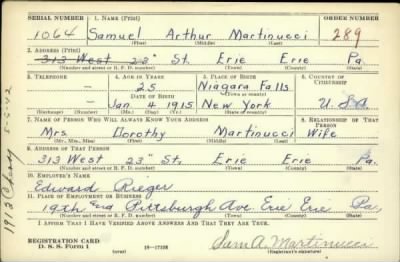 SERIAL NUMBER 1. NAME (Print) ORDER NUMBER
1064 Samuel Arthur Martinucci 289
(First) (Middle) (Last)
2. ADDRESS (Print)
313 West 23" St. Erie Erie Pa.
(Number and street or R. F. D. number) (Town) (County) (State)
3. TELEPHONE 4. AGE IN YEARS 5. PLACE OF BIRTH 6. COUNTRY OF CITIZENSHIP
— 25 Niagara Falls
DATE OF BIRTH (Town or county)
— Jan. 4 1915 New York U.S.A.
(Exchange) (Number) (Mo.) (Day) (Yr.) (State or country)
7. NAME OF PERSON WHO WILL ALWAYS KNOW YOUR ADDRESS 8. RELATIONSHIP OF THAT PERSON
Mrs. Dorothy Martinucci Wife
(Mr., Mrs., Miss) (First) (Middle) (Last)
9. ADDRESS OF THAT PERSON
313 West 23" St. Erie Erie Pa.
(Number and street or R. F. D. number) (Town) (County) (State)
10. EMPLOYER'S NAME
Edward Rieger
11. PLACE OF EMPLOYMENT OR BUSINESS
19th and Pittsburgh Ave Erie Erie Pa
(Number and street or R. F. D. number) (Town) (County) (State)
I AFFIRM THAT I HAVE VERIFIED ABOVE ANSWERS AND THAT THEY ARE TRUE.
REGISTRATION CARD
D. S. S. Form 1 (over) 16—17105 Sam A. Martinucci
(Registrant's signature)